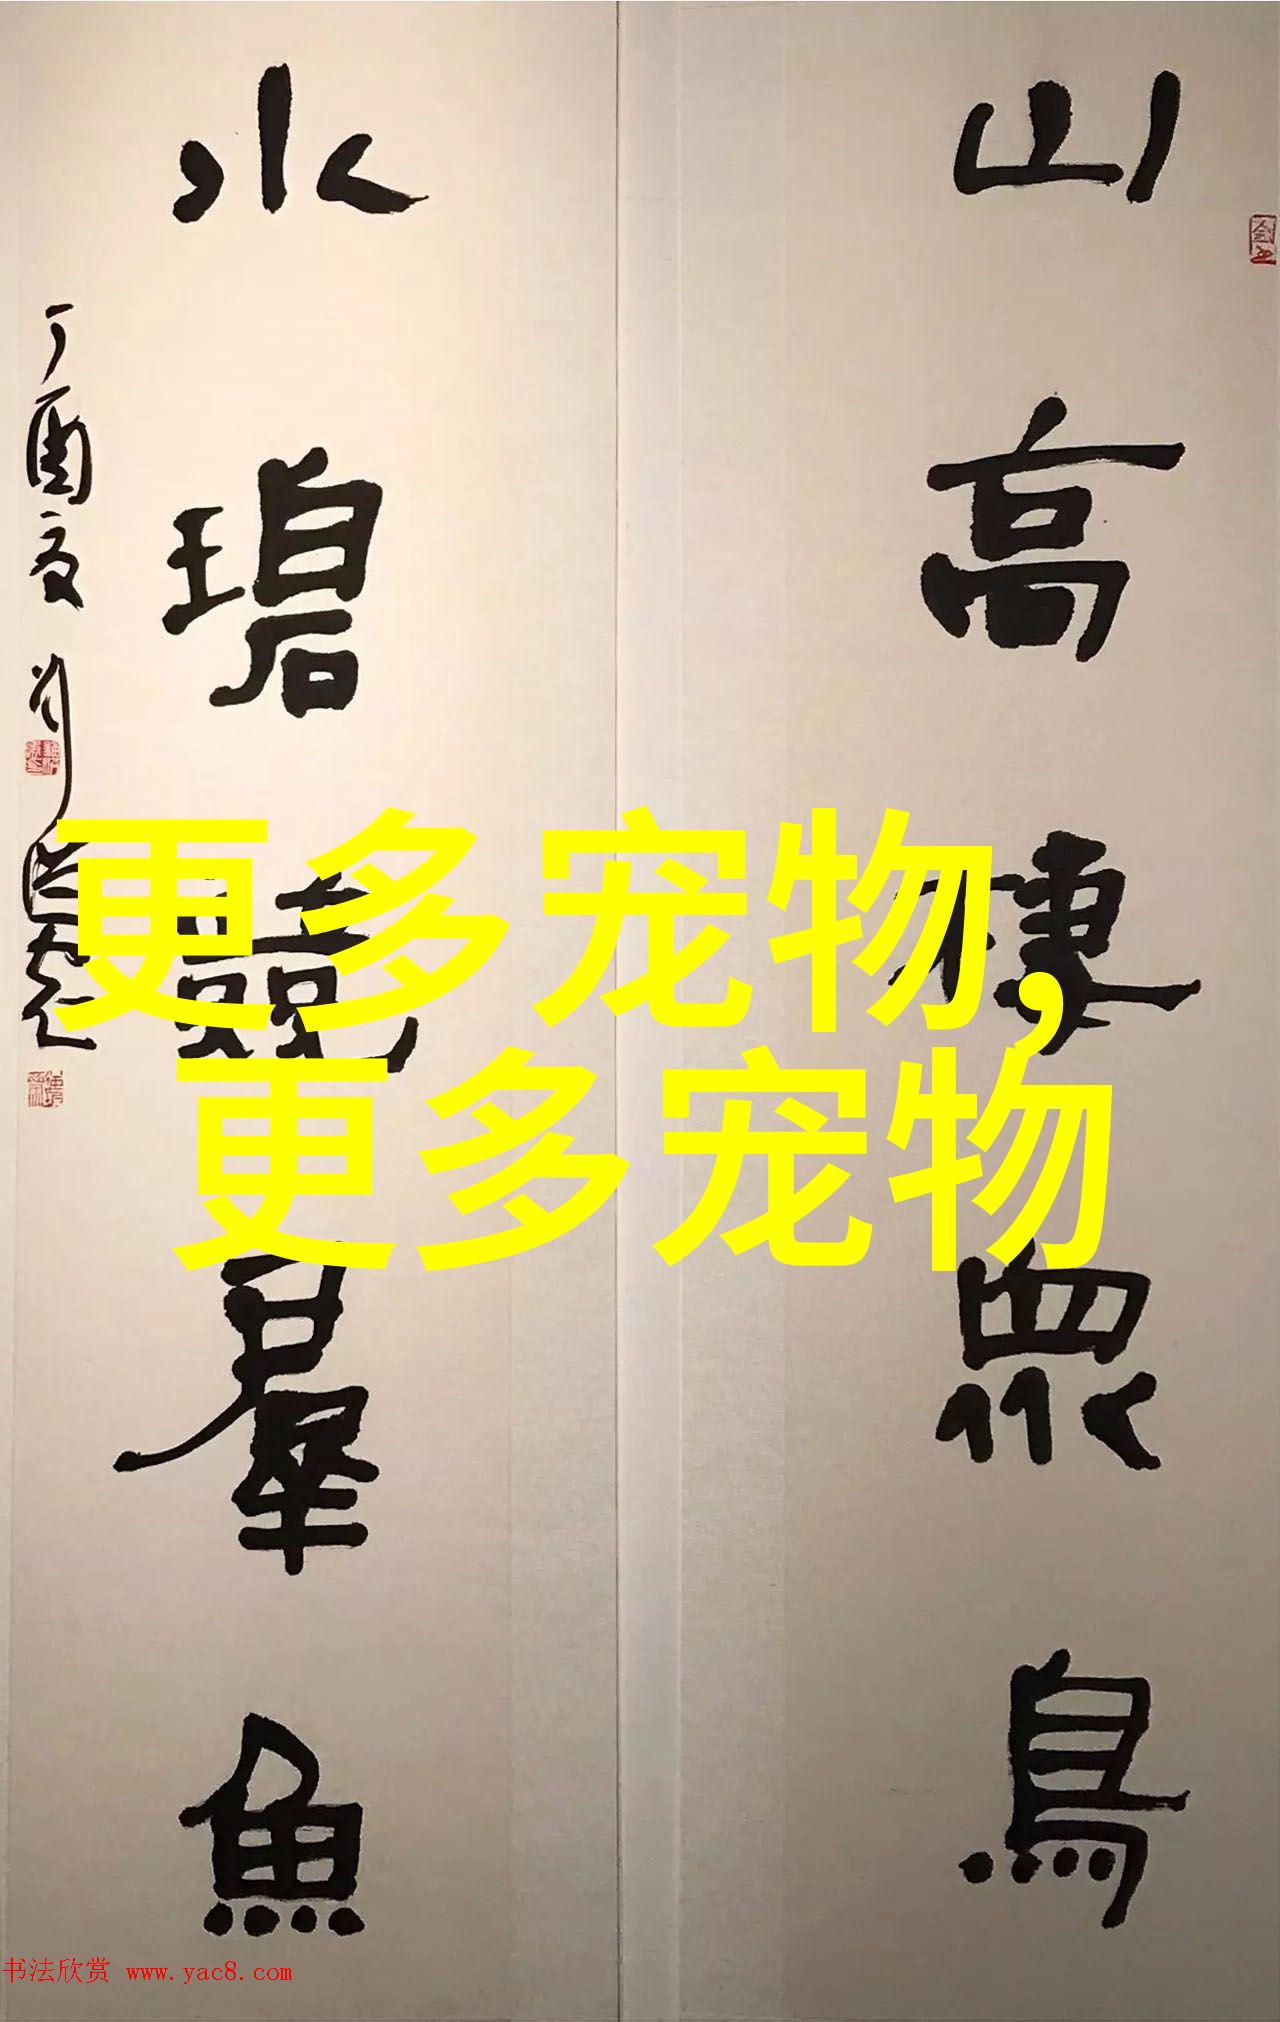 山高棲眾鳥
水碧競羣魚
丁酉夏
更多宠物，
更多宠物
书法欣赏 www.yac8.com